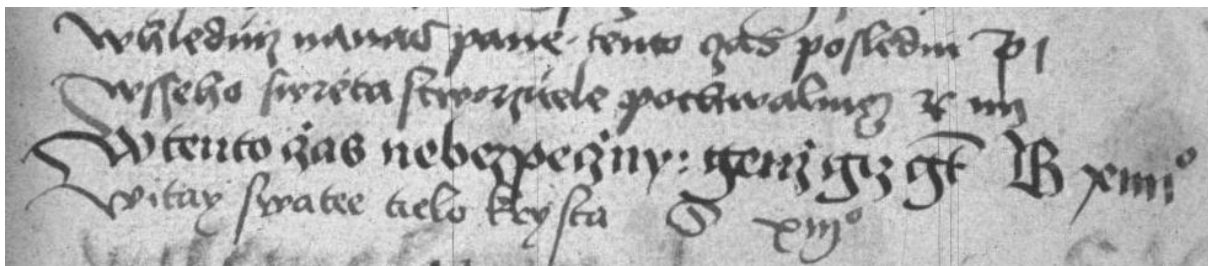 Whledniz nanas pane tento čas posledni P j
wsseho swieta stworzitele pochwalmez R iiij
W tento čas nebezpečny : genž giz gt B xiiii°
Witay swatee tielo krysta S xiij°